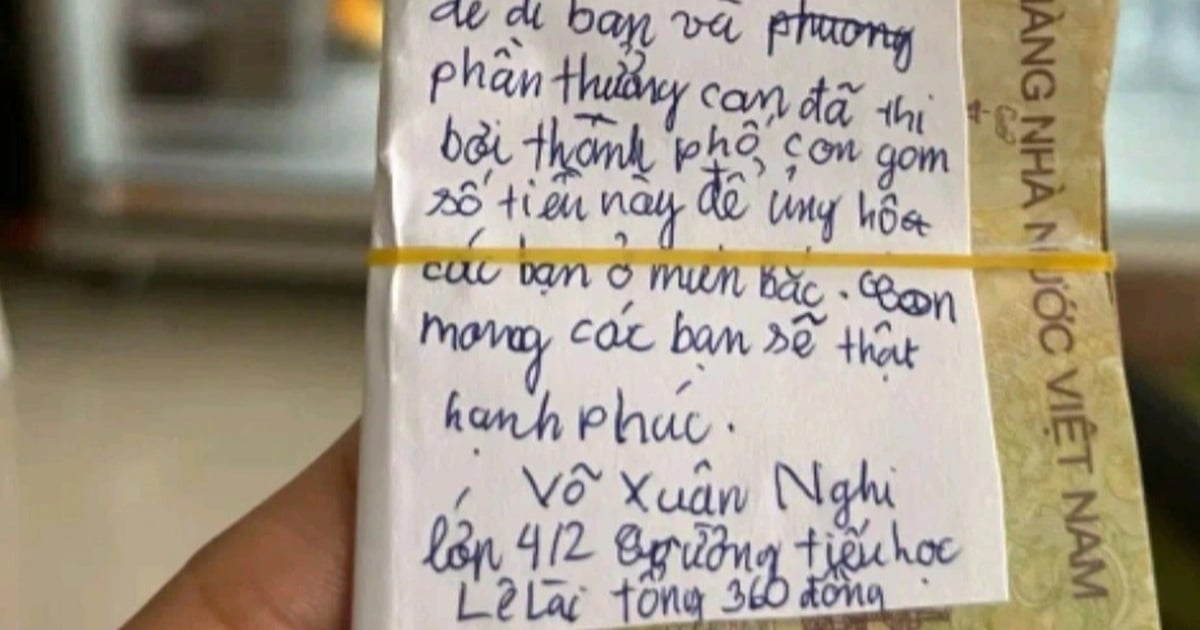 để đi bạn và phương
phần thưởng con đã thi
bởi thành phố, con gom
số tiền này để ủng hộ
các bạn ở miền Bắc. Con
mong các bạn sẽ thật
hạnh phúc.
Võ Xuân Nghi
lớp 4/2 trường tiểu học
Lê Lai tổng 360 đồng
HÀNG NHÀ NƯỚC VIỆT NAM